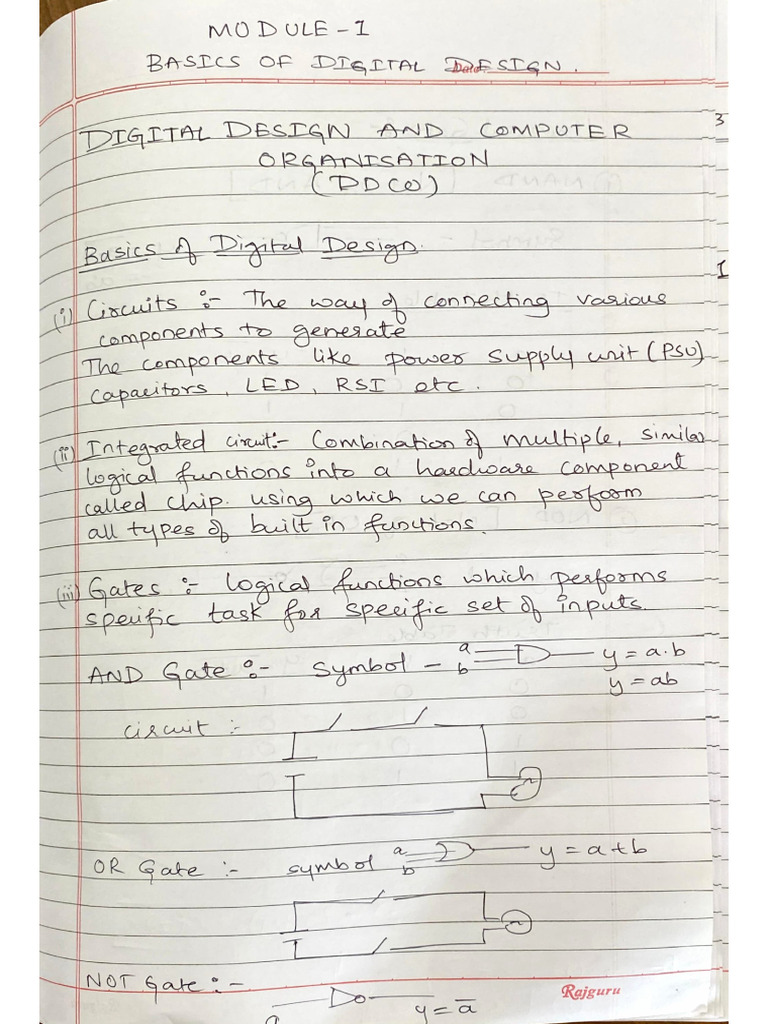 MODULE-1
BASICS OF DIGITAL DESIGN.
Date
DIGITAL DESIGN AND COMPUTER
ORGANISATION
(DDCO)
Basics of Digital Design.
(i) Circuits :- The way of connecting various
components to generate
The components like power supply unit (PSU)
capacitors, LED, RSI etc.
(ii) Integrated circuit:- Combination of multiple, similar
logical functions into a hardware component
called chip. using which we can perform
all types of built in functions.
(iii) Gates :- logical functions which performs
specific task for specific set of inputs.
AND Gate :- symbol - a b y = a.b
y = ab
circuit :-
OR Gate :- symbol a b y = a+b
NOT Gate :-
a y = a̅
Rajguru
3
I